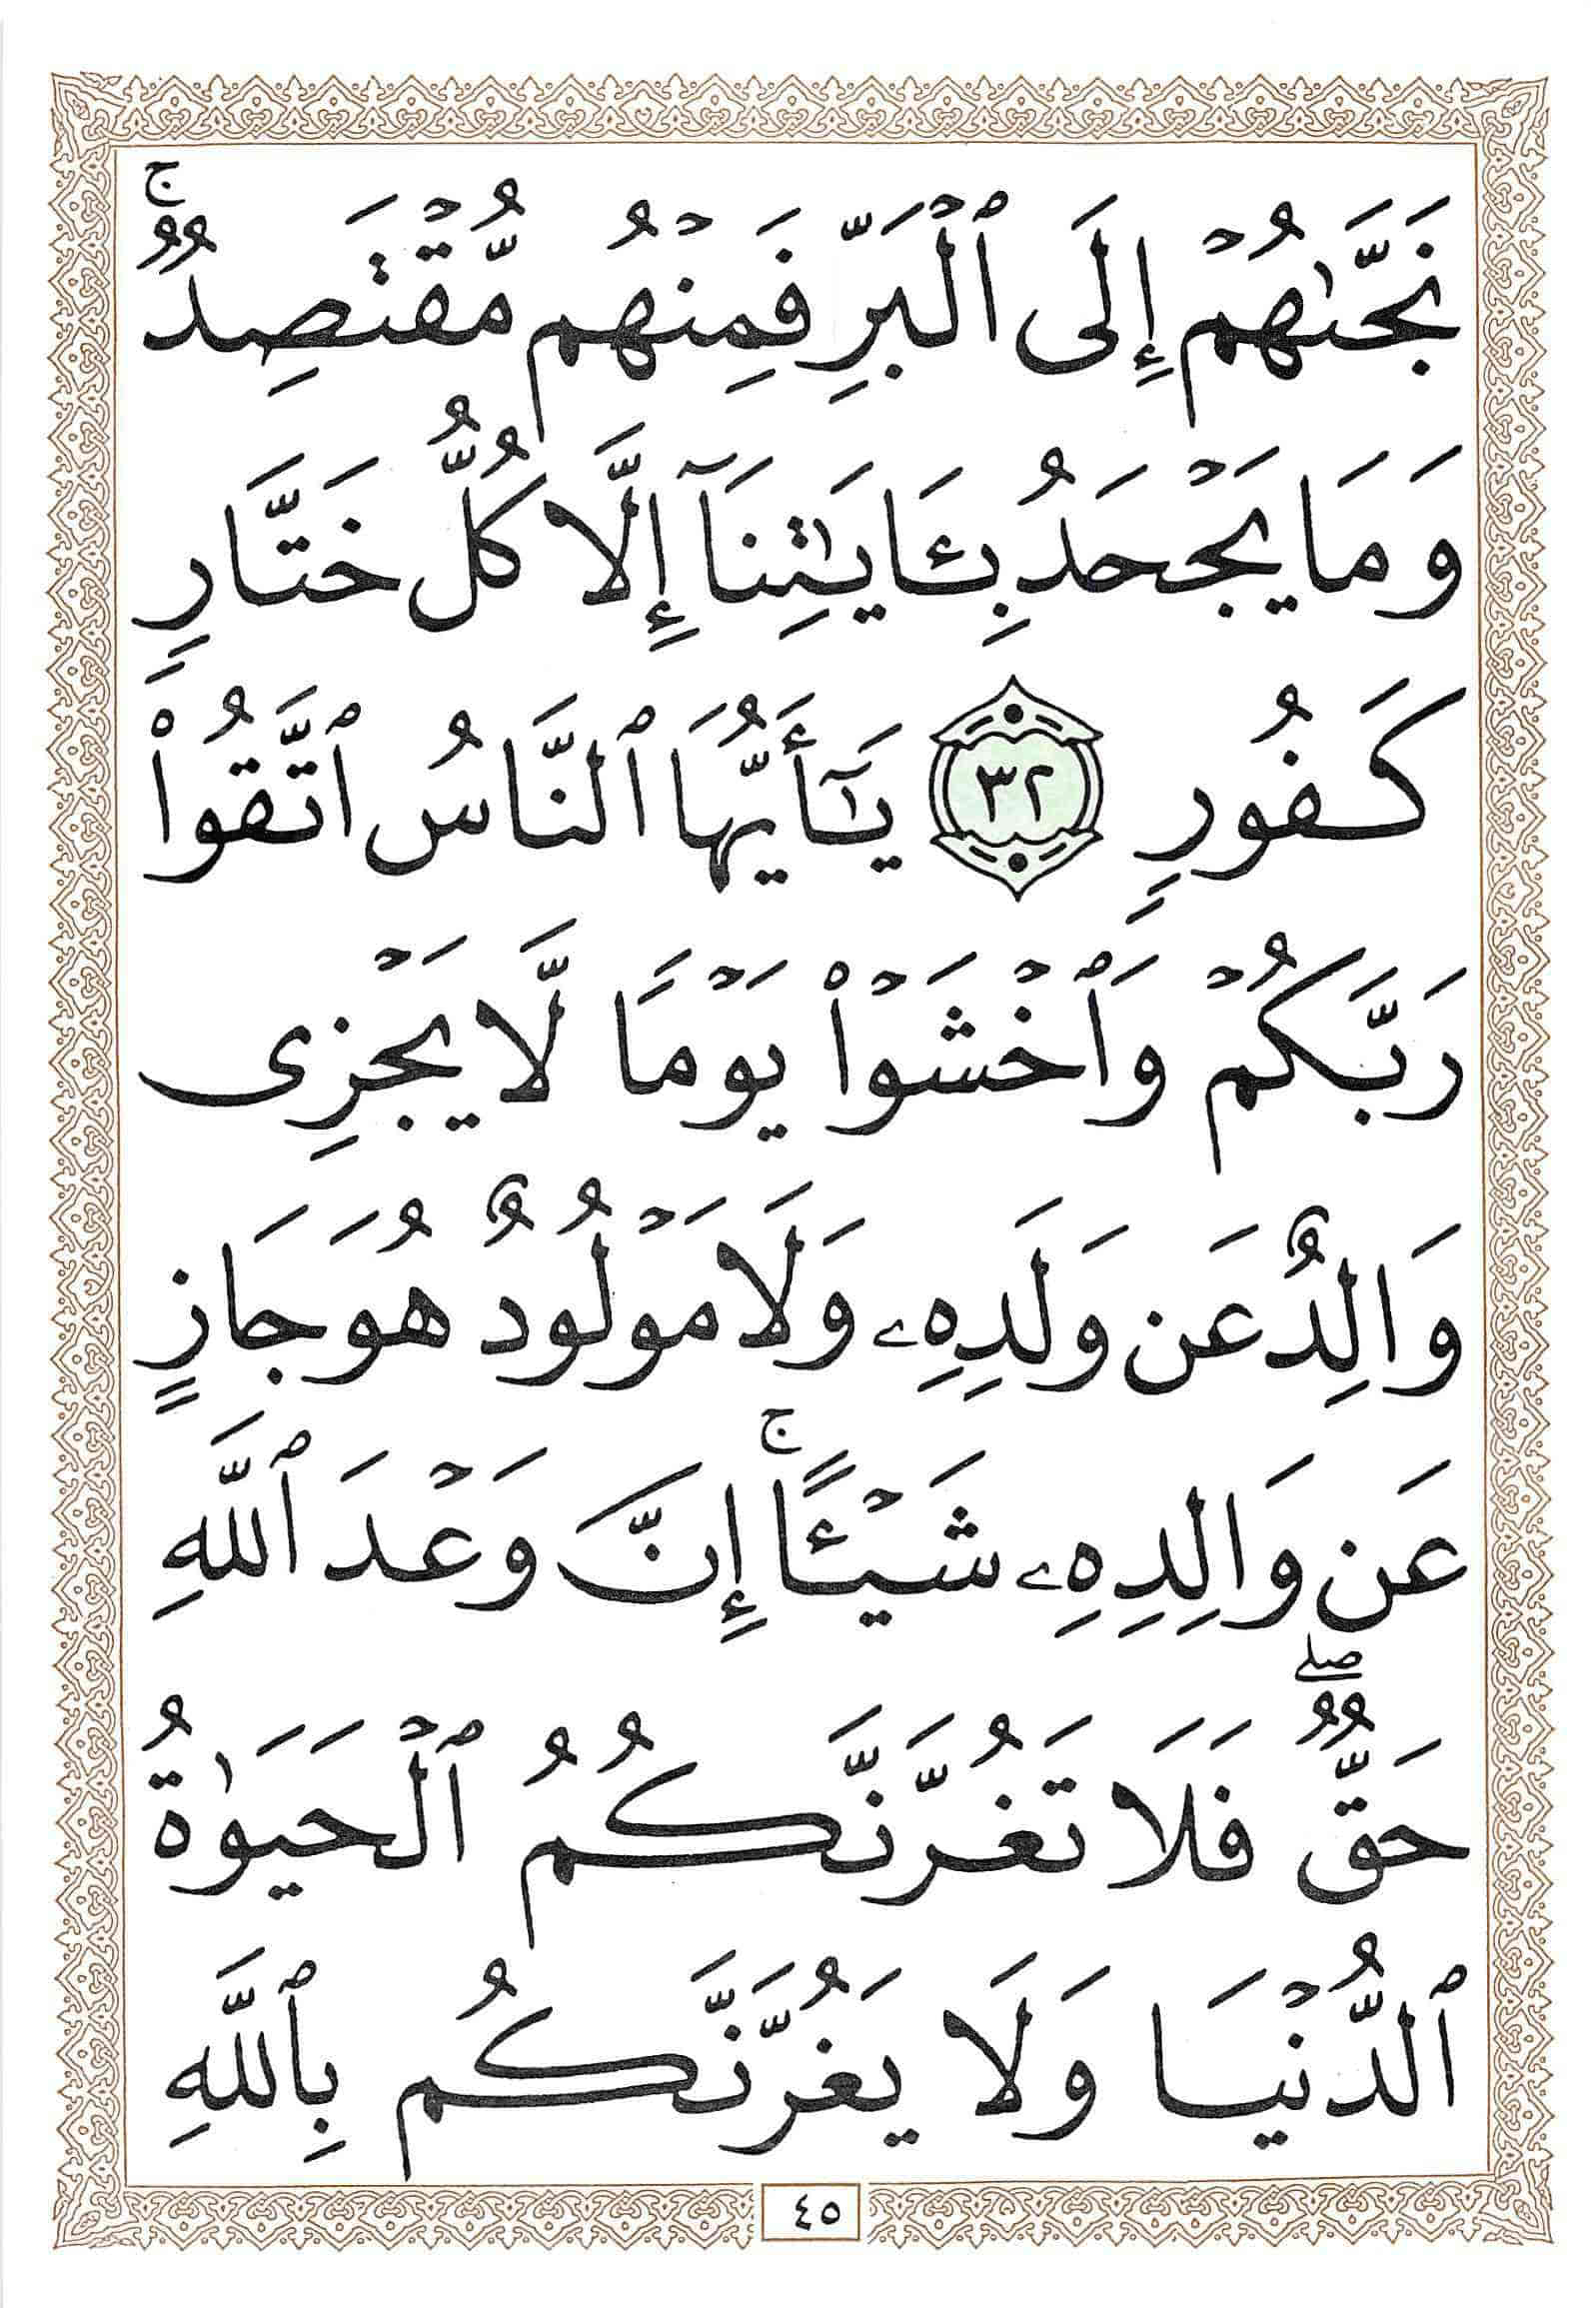 نَجَّىٰهُمۡ إِلَى ٱلۡبَرِّ فَمِنۡهُم مُّقۡتَصِدٞۚ
وَمَا يَجۡحَدُ بِـَٔايَٰتِنَآ إِلَّا كُلُّ خَتَّارٖ
كَفُورٖ ٣٢ يَٰٓأَيُّهَا ٱلنَّاسُ ٱتَّقُواْ
رَبَّكُمۡ وَٱخۡشَوۡاْ يَوۡمٗا لَّا يَجۡزِي
وَالِدٌ عَن وَلَدِهِۦ وَلَا مَوۡلُودٌ هُوَ جَازٍ
عَن وَالِدِهِۦ شَيۡـًٔاۚ إِنَّ وَعۡدَ ٱللَّهِ
حَقّٞۖ فَلَا تَغُرَّنَّكُمُ ٱلۡحَيَوٰةُ
ٱلدُّنۡيَا وَلَا يَغُرَّنَّكُم بِٱللَّهِ
٤٥